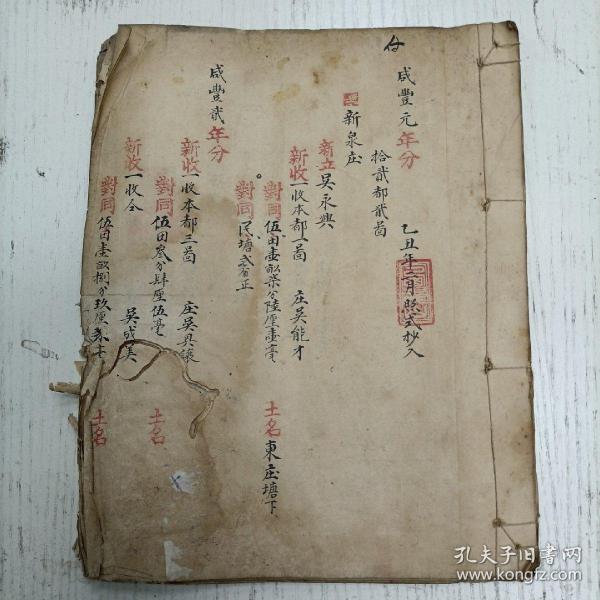 咸豐元年分
拾貳都貳啚
乙丑年二月照式抄入
新泉庄
新立吴永興
新收一收本都一啚 庄吴能才
對同伍田壹畝柒分陸厘壹毫 土名東庄塘下
對同 塘弍分正
咸豐貳年分
新收一收本都三啚 庄吴具
對同伍田叁分肆厘伍毫 土名
新收一收仝 吴成美
對同伍田壹畝捌分玖厘 土名
孔夫子旧书网
www.kongfz.com